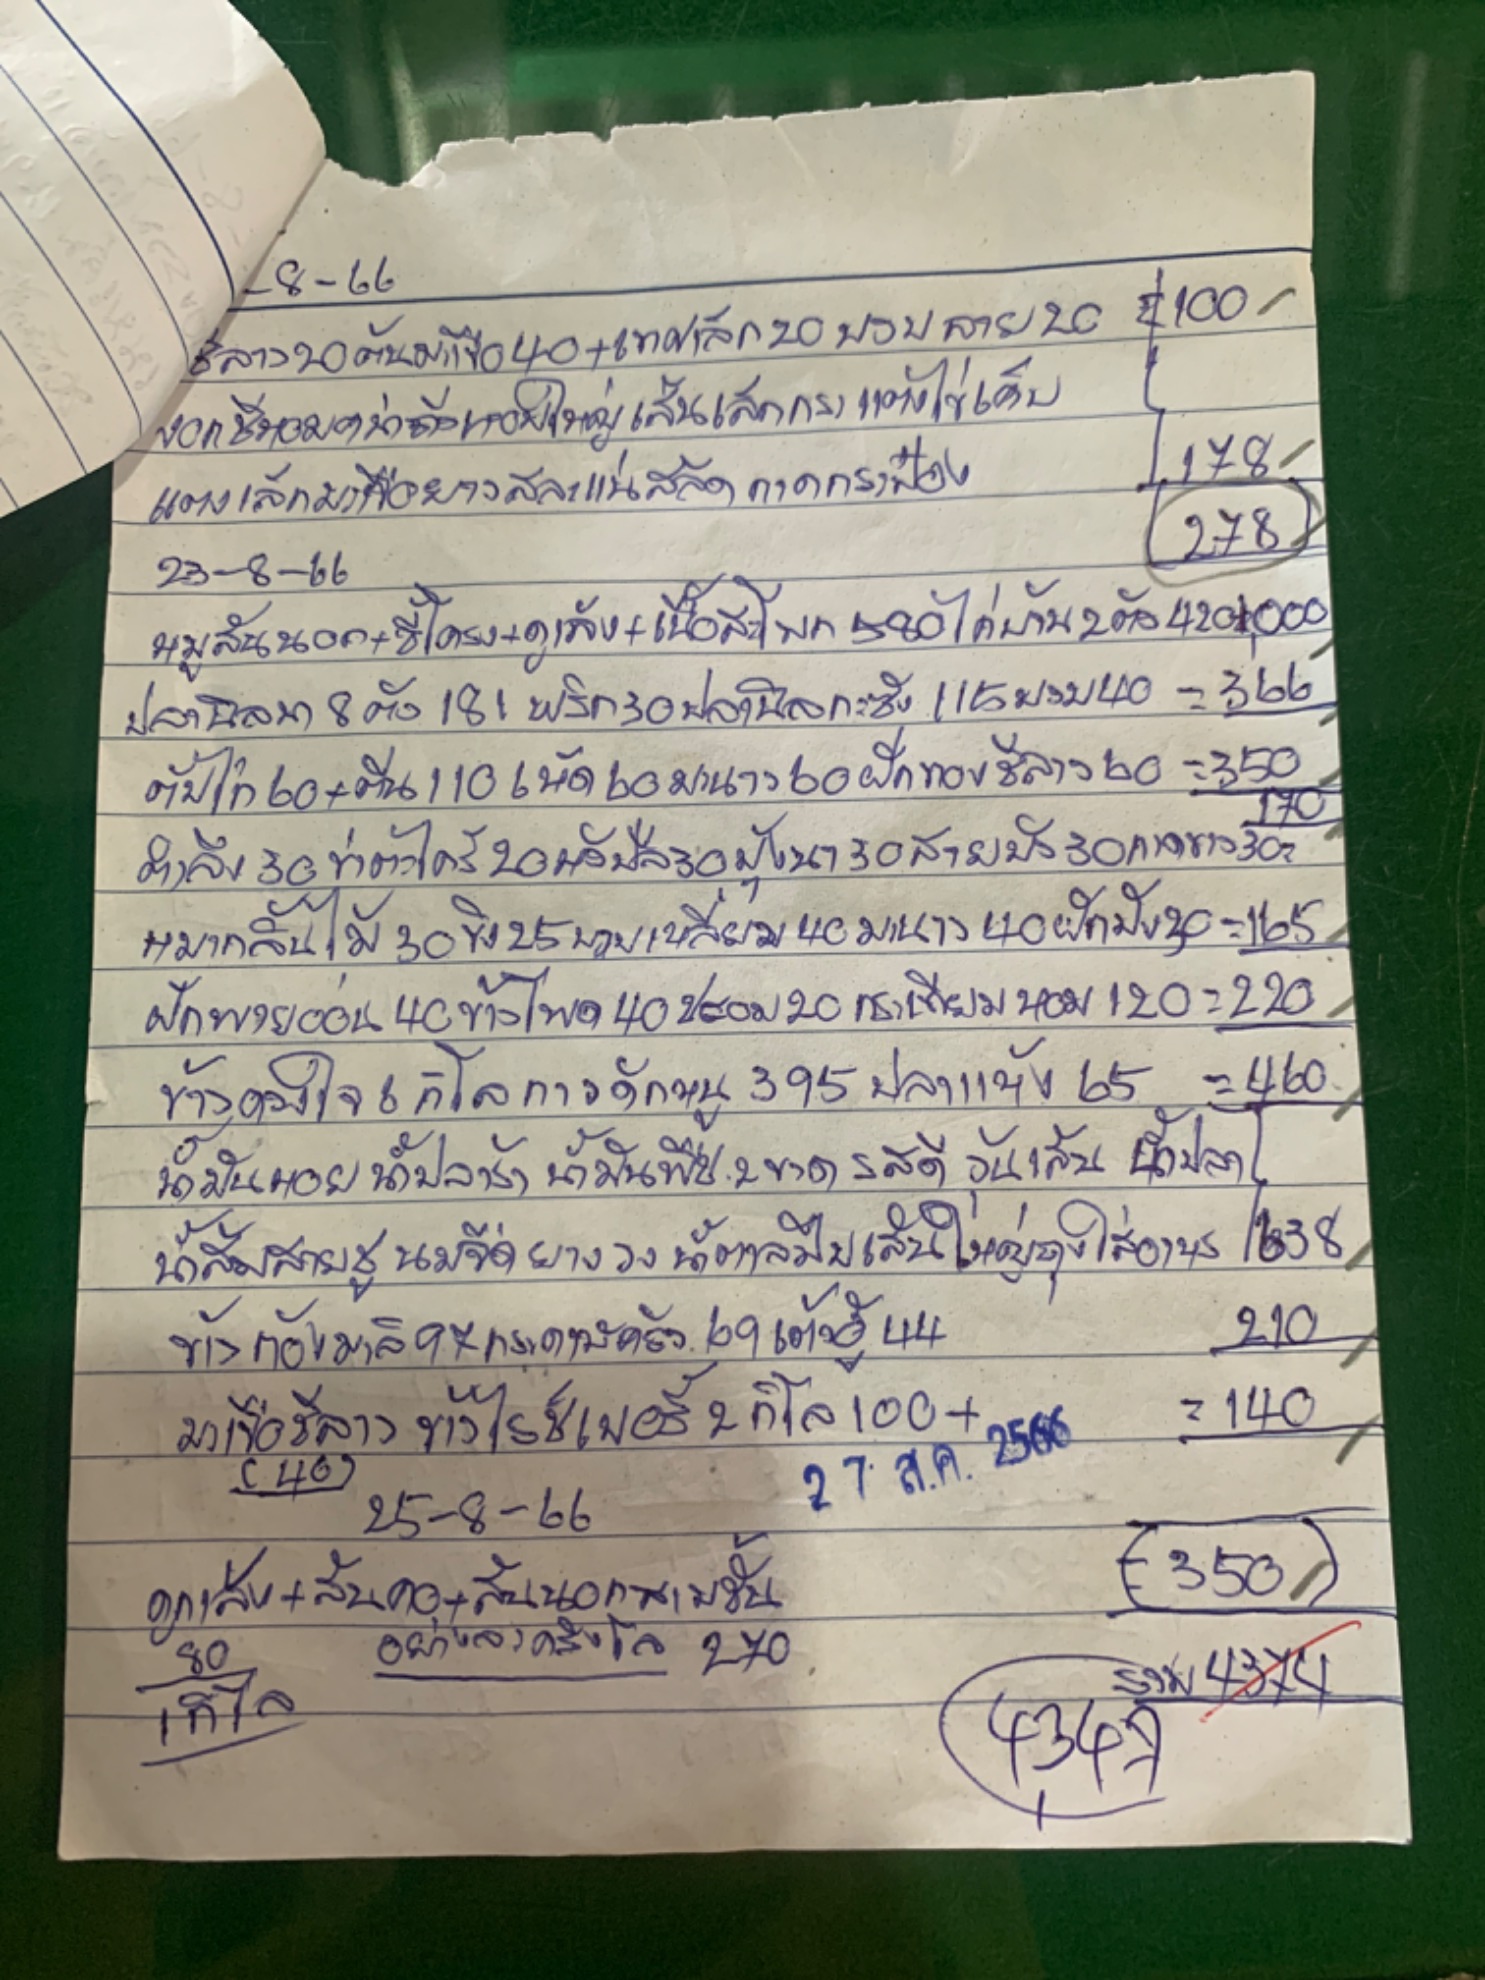 -8-66
ชีลาว 20 ต้นมะเขือ 40 + เทศเล็ก 20 บวบลาย 20 = 100
งอกชีหอมคน่า ใหญ่เส้นเล็กกระ ไข่เค็ม
แตงเล็กมะเขือยาวสะละแน่สลัด กาดกระป๋อง 178
278
23-8-66
หมูสันนอก + ซี่โครง + ดูกเล้ง + เนื้อสะโพก 580 ไก่บ้าน 2 ตัว 420 1,000
ปลานิลนา 8 ตัว 181 พริก 30 ปลานิลกะชัง 115 บวบ 40 = 366
ตับไก่ 60 + ตีน 110 เห็ด 60 มะนาว 60 ฝักทองชีลาว 60 = 350
170
ตำลึง 30 ข่าตะไคร้ 20 หัวปลี 30 ผุ้งนา 30 สายบัว 30 กาดขาว 30 =
หมากลิ้นไม้ 30 ขิง 25 บวบเหลี่ยม 40 มะนาว 40 ฝักบัง 30 = 165
ฝักพายอ่อน 40 ข้าวโพด 40 ชะอม 20 กระเทียมหอม 120 = 220
ข้าวดวงใจ 6 กิโล กาวดักหนู 395 ปลาแห้ง 65 = 460
น้ำมันหอย น้ำปลาร้า น้ำมันพืช. 2 ขวด รสดี วุ้นเส้น น้ำปลา
น้ำส้มสายชู นมจืด ยางวง น้ำตาลมิตรเส้นใหญ่ถุงใส่อาหาร 638
ข้าวกล้องมะลิ 97 กระดาษครัว. 69 เต้าหู้ 44 210
มะเขือชีลาว ข้าวไรซ์เบอรี่ 2 กิโล 100 + = 140
(40)
27 ส.ค. 2566
25-8-66
ดูกเล้ง + สันคอ + สันนอกสามชั้น = 350
80 อย่างละครึ่งโล 270
1 กิโล
รวม 4374
4347